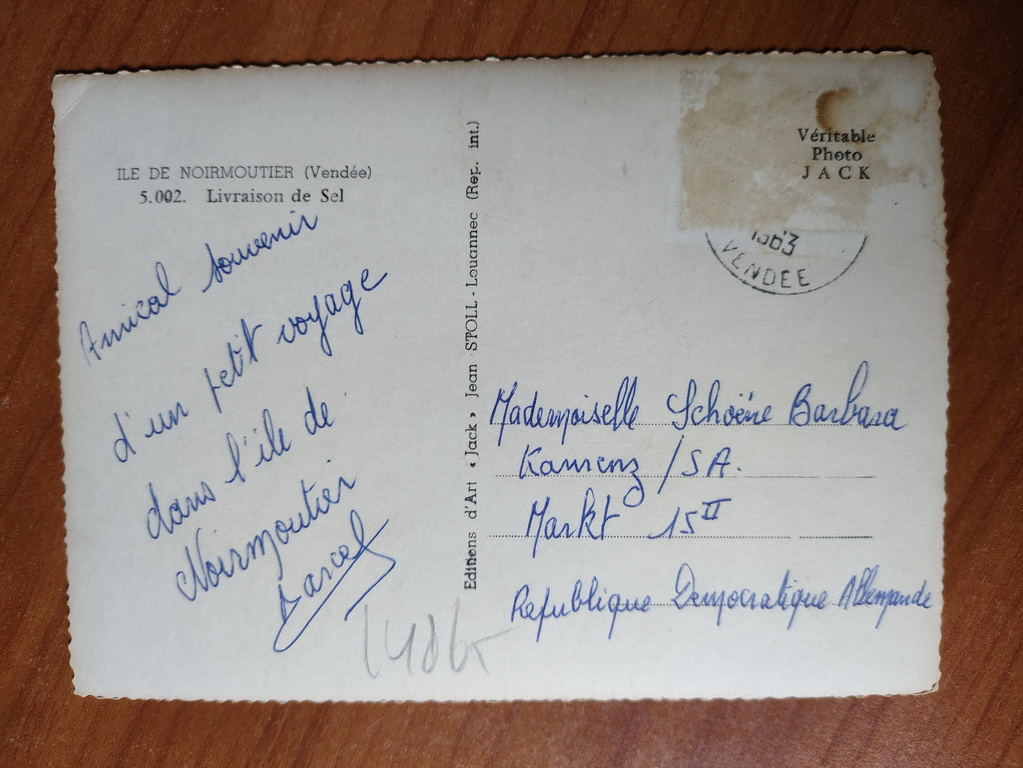 ILE DE NOIRMOUTIER (Vendée)
5.002. Livraison de Sel
Amical souvenir
d'un petit voyage
dans l'île de
Noirmoutier
Marcel
Editions d'Art « Jack » Jean STOLL - Louannec (Rep. int.)
Véritable
Photo
JACK
1963
VENDEE
Mademoiselle Schoëne Barbara
Kamenz / SA.
Markt 15 II
Republique Democratique Allemande